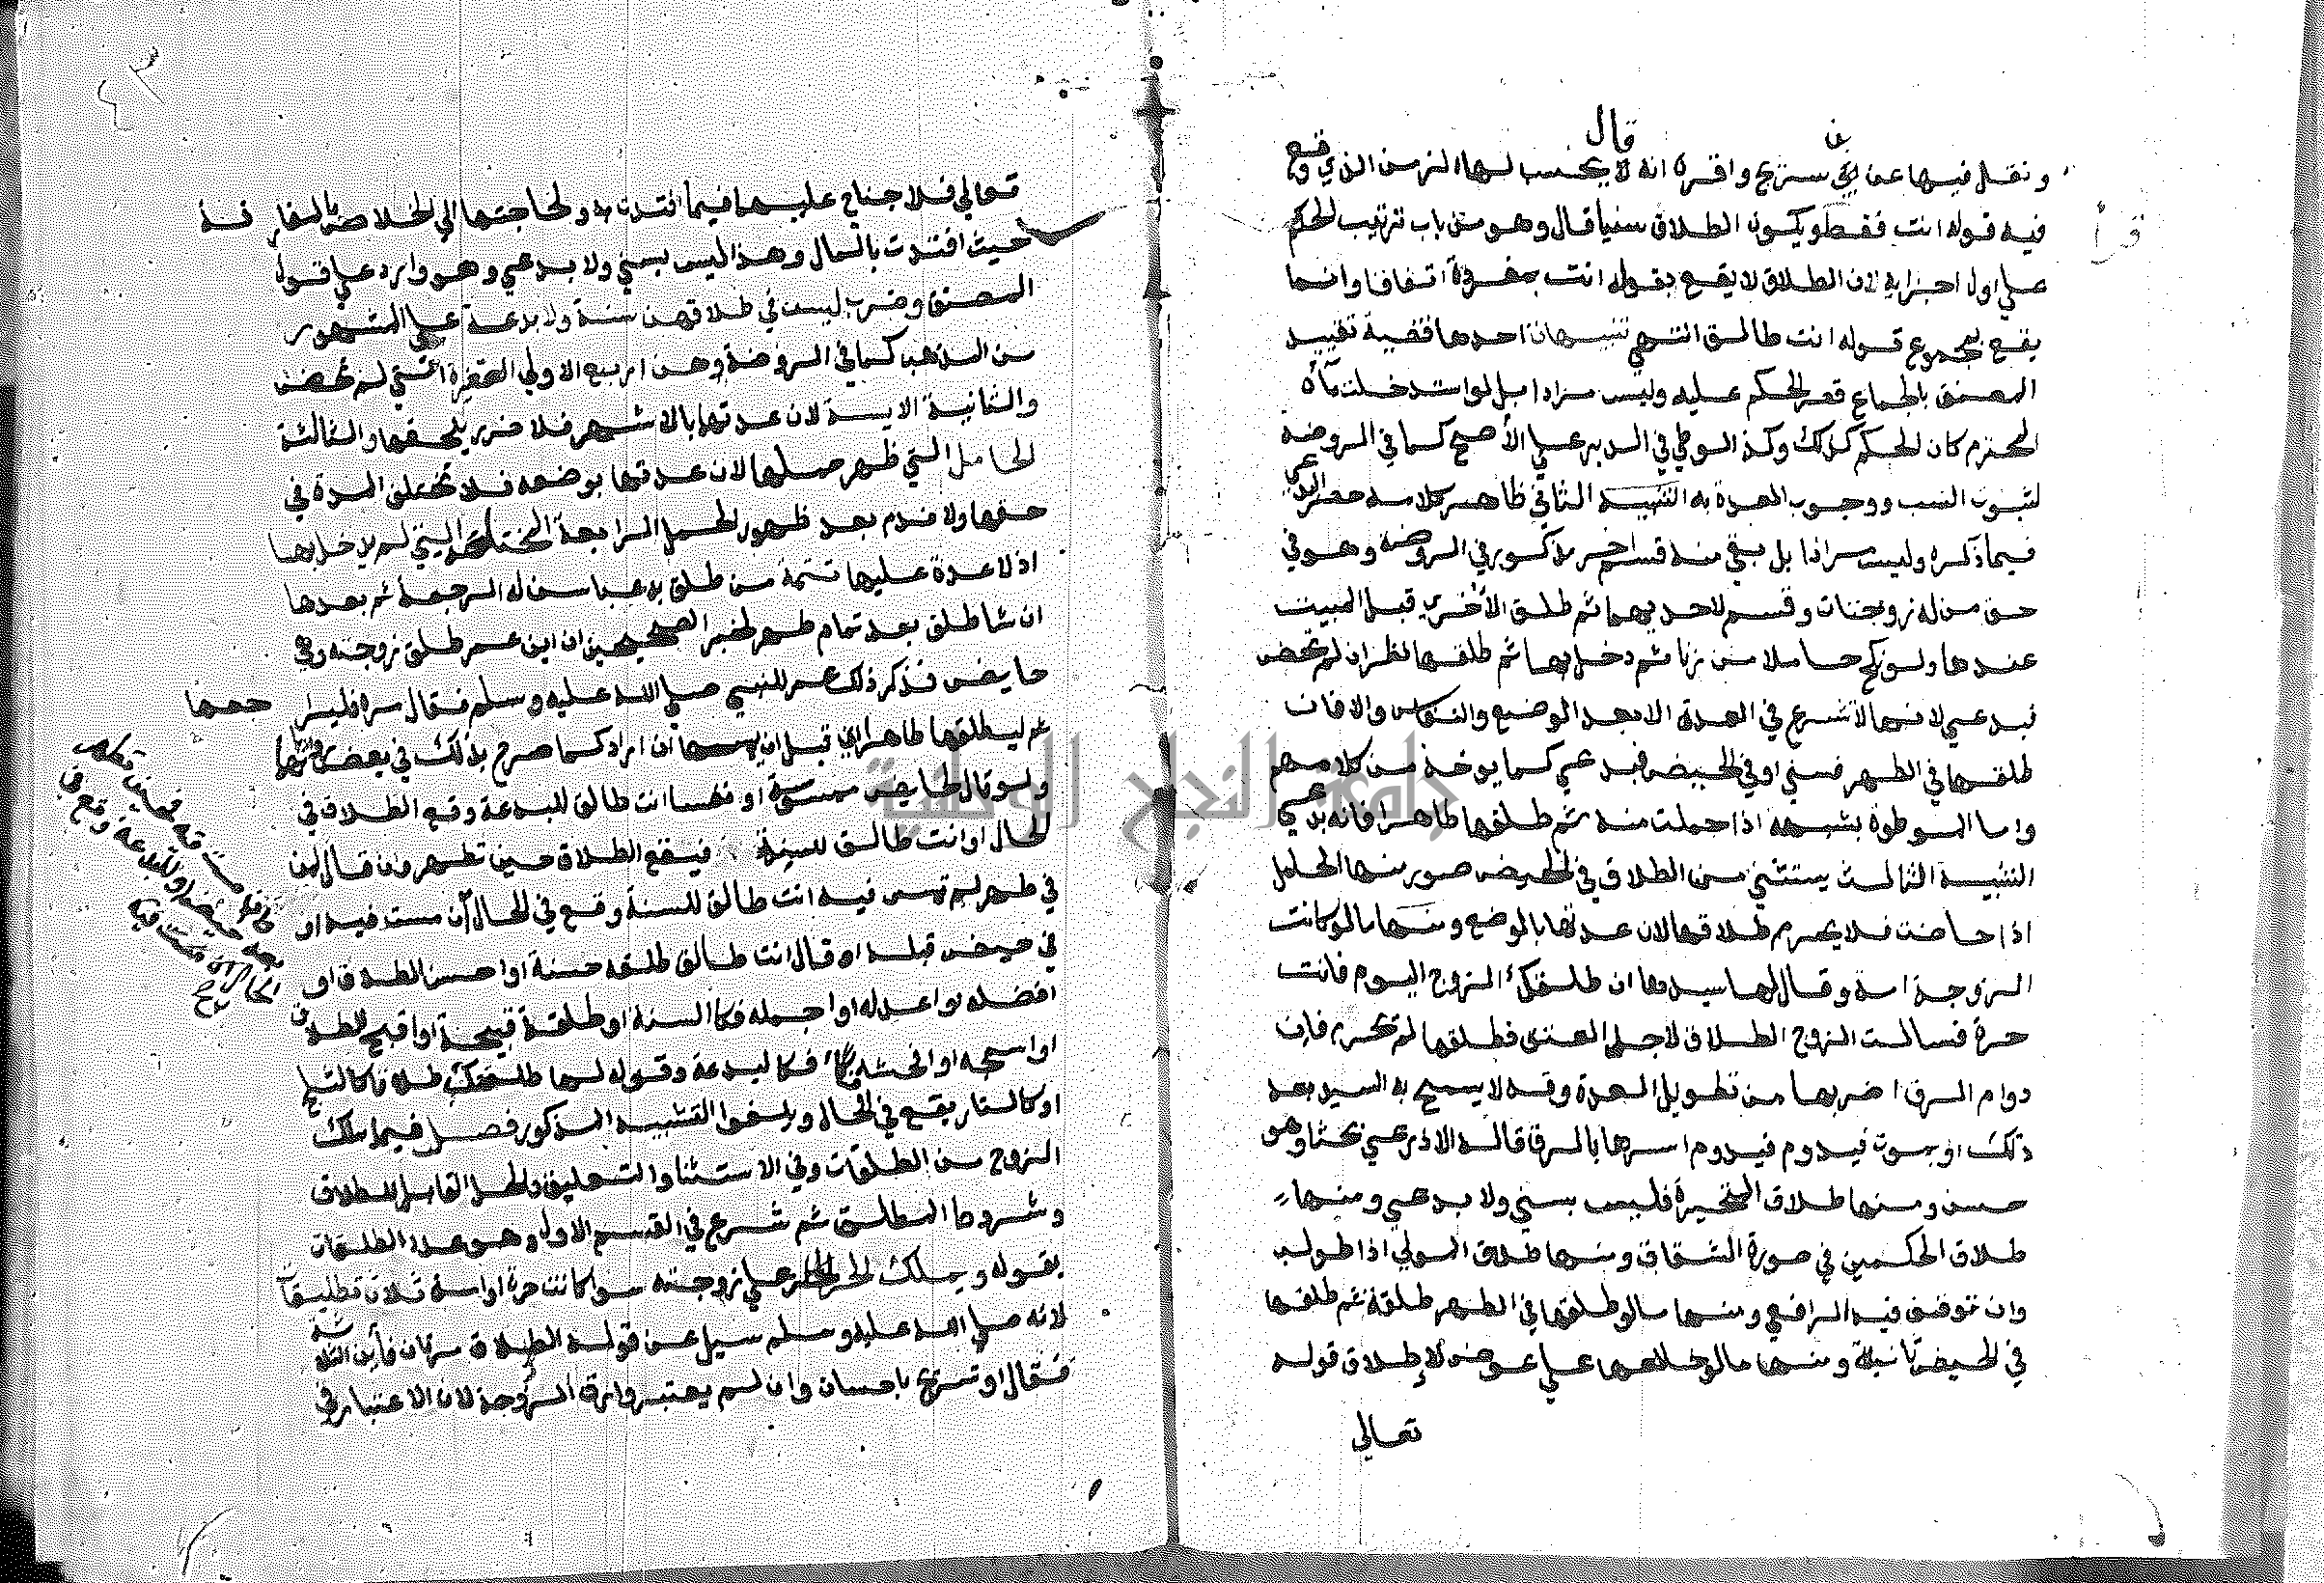 قال
ونقل فيها عن ابن سريج واقره انه لا يحسب لها الزمن الذي وقع
فيه قوله انت فقط ويكون الطلاق سنيا قال وهو من باب ترتيب الحكم
على اول اجزايه لان الطلاق لا يقع بقوله انت بمفرده اتفاقا وانما
يقع بمجموع قوله انت طالق انتهى تنبيهان احدها قضية تقييد
المصنف بالجماع قصر الحكم عليه وليس مرادا بل لو استدخلت مآه
المحترم كان الحكم كذلك وكذا الوطي في الدبر على الأصح كما في الروضة
لثبوت النسب ووجوب العدة به التنبيه الثاني ظاهر كلامه حصر البدعي
فيما ذكره وليس مرادا بل بقي منه قسم اخر مذكور في الروضة وهو في
حق من له زوجتان وقسم لاحديهما ثم طلق الأخرى قبل المبيت
عندها ولو نكح حاملا من زنا ثم دخل بها ثم طلقها نظر ان لم تحض
فبدعي لانها لا تشرع في العدة الا بعد الوضع والنفاس والا فان
طلقها في الطهر فسني او في الحيض فبدعي كما يوخذ من كلامهم
واما الموطوة بشبهة اذا حملت منه ثم طلقها طاهرا فانه بدعي
التنبيه الثالث يستثنى من الطلاق في الحيض صور منها الحامل
اذا حاضت فلا يحرم طلاقها لان عدتها بالوضع ومنها ما لو كانت
الزوجة امة وقال لها سيدها ان طلقك الزوج اليوم فانت
حرة فسالت الزوج الطلاق لاجل العتق فطلقها لم تحرم فان
دوام الرق اضر بها من تطويل العدة وقد لا يسمح به السيد بعد
ذلك او يموت فيدوم فيدوم اسرها بالرق قاله الاذرعي بحثا وهو
حسن ومنها طلاق المتحيرة فليس بسني ولا بدعي ومنها
طلاق الحكمين في صورة الشقاق ومنها طلاق المولي اذا طولب
وان توقف فيه الرافعي ومنها ما لو طلقها في الطهر طلقة ثم طلقها
في الحيض ثانية ومنها ما لو خالعها على عوض لاطلاق قوله
تعالى
تعالى فلا جناح عليهما فيما افتدت به ولحاجتها الى الخلاص بالمفارقة
حيث افتدت بالمال وهذا ليس بسني ولا بدعي وهو وارد على قول
المصنف وضرب ليس في طلاقهن سنة ولا بدعة على المشهور
من المذهب كما في الروضة وهن اربع الاولى الصغيرة التي لم تحض
والثانية الايسة لان عدتها بالاشهر فلا ضرر يلحقها والثالثة
الحامل التي ظهر حملها لان عدتها بوضعه فلا تختلف المدة في
حقها ولا ندم بعد ظهور الحمل الرابعة المختلعة التي لم يدخل بها
اذ لا عدة عليها تتمة من طلق بدعيا سن له الرجعة ثم بعدها
ان شا طلق بعد تمام طهر لخبر الصحيحين ان ابن عمر طلق زوجته وهي
حايض فذكر ذلك عمر للنبي صلى الله عليه وسلم فقال مره فليراجعها
ثم ليطلقها طاهرا اي قبل ان يمسها ان اراد كما صرح بذلك في بعض رواياتهما
ولو قال لحايض ممسوسة او نفسا انت طالق للبدعة وقع الطلاق في
الحال او انت طالق للسنة فيقع الطلاق حين تطهر وان قال لمن
في طهر لم تمس فيه انت طالق للسنة وقع في الحال آن مست فيه او
في حيض قبله او قال انت طالق طلقة حسنة او احسن الطلاق او
افضله او اعدله او اجمله فكالسنة او طلقة قبيحة او اقبح الطلاق
او اسمجه او افحشه فكالبدعة وقوله لها طلقتك طلاقا كالثلج
او كالنار يقع في الحال ويلغوا التشبيه المذكور فصل فيما يملك
الزوج من الطلقات وفي الاستثنا والتعليق والمحل القابل للطلاق
وشروط المطلق ثم شرع في القسم الاول وهو عدد الطلقات
بقوله ويملك الحر على زوجته سوا كانت حرة او امة ثلاث تطليقات
لانه صلى الله عليه وسلم سيل عن قوله الطلاق مرتان فأين الثالثة
فقال او تسريح باحسان وان لم يعتبروا رق الزوجة لان الاعتبار في
جامعة النجاح الوطنية